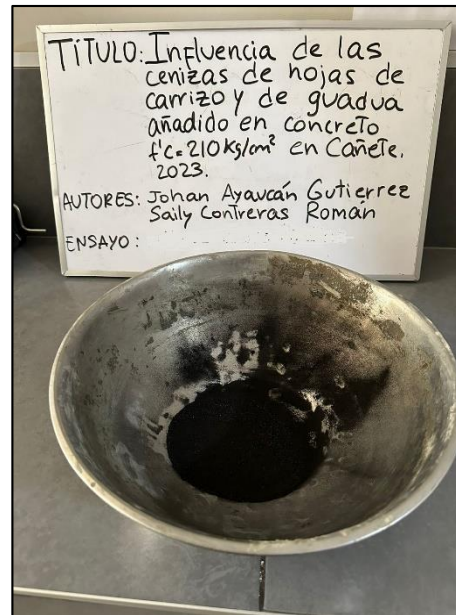 TÍTULO: Influencia de las
cenizas de hojas de
carrizo y de guadua
añadido en concreto
f'c=210 Kg/cm² en Cañete,
2023.
AUTORES: Johan Ayaucán Gutierrez
Saily Contreras Román
ENSAYO: